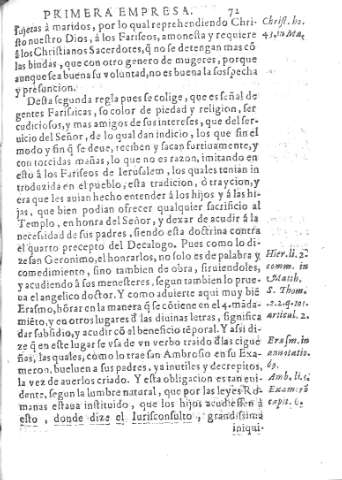 PRIMERA EMPRESA. 72
sujetas à maridos, por lo qual reprehendiendo Chri-
sto nuestro Dios, à los Fariseos, amonesta y requiere
à los Christianos Sacerdotes, q̃ no se detengan mas cõ
las biudas, que con otro genero de mugeres, porque
aunque sea buena su voluntad, no es buena la sospecha
y presuncion.
Desta segunda regla pues se colige, que es señal de
gentes Farisaicas, so color de piedad y religion, ser
cudiciosos, y mas amigos de sus intereses, que del ser-
uicio del Señor, de lo qual dan indicio, los que sin el
modo y fin q̃ se deue, reciben y sacan furtiuamente, y
con torcidas mañas, lo que no es razon, imitando en
esto à los Fariseos de Ierusalem, los quales tenian in
troduzida en el pueblo, esta tradicion, ò traycion, y
era que les auian hecho entender à los hijos y à las hi-
jas, que bien podian ofrecer qualquier sacrificio al
Templo, en honra del Señor, y dexar de acudir à la
necessidad de sus padres, siendo esta doctrina contra
el quarto precepto del Decalogo. Pues como lo di-
ze san Geronimo, el honrarlos, no solo es de palabra y
comedimiento, sino tambien de obra, siruiendoles,
y acudiendo à sus menesteres, segun tambien lo prue-
ua el angelico doctor. Y como aduierte aqui muy biẽ
Erasmo, hõrar en la manera q̃ se cõtiene en el 4. mãda-
miẽto, y en otros lugares d̃ las diuinas letras, significa
dar subsidio, y acudir cõ el beneficio tẽporal. Y assi di-
ze q̃ en este lugar se vsa de vn verbo traido d̃ las cigue
ñas, las quales, como lo trae san Ambrosio en su Exa-
meron, bueluen a sus padres, ya inutiles y decrepitos,
la vez de auerlos criado. Y esta obligacion es tan eui-
dente, segun la lumbre natural, que por las leyes Ro-
manas estaua instituido, que los hijos acudiessen à
esto, donde dize el Iurisconsulto, grandissima
iniqui-
Christ. ho.
Hier. li. 2.
comm. in
Matth.
S. Thom.
articul. 2.
Erasm. in
annotatio.
Amb. li. 5.
Examerõ
capit. 6.